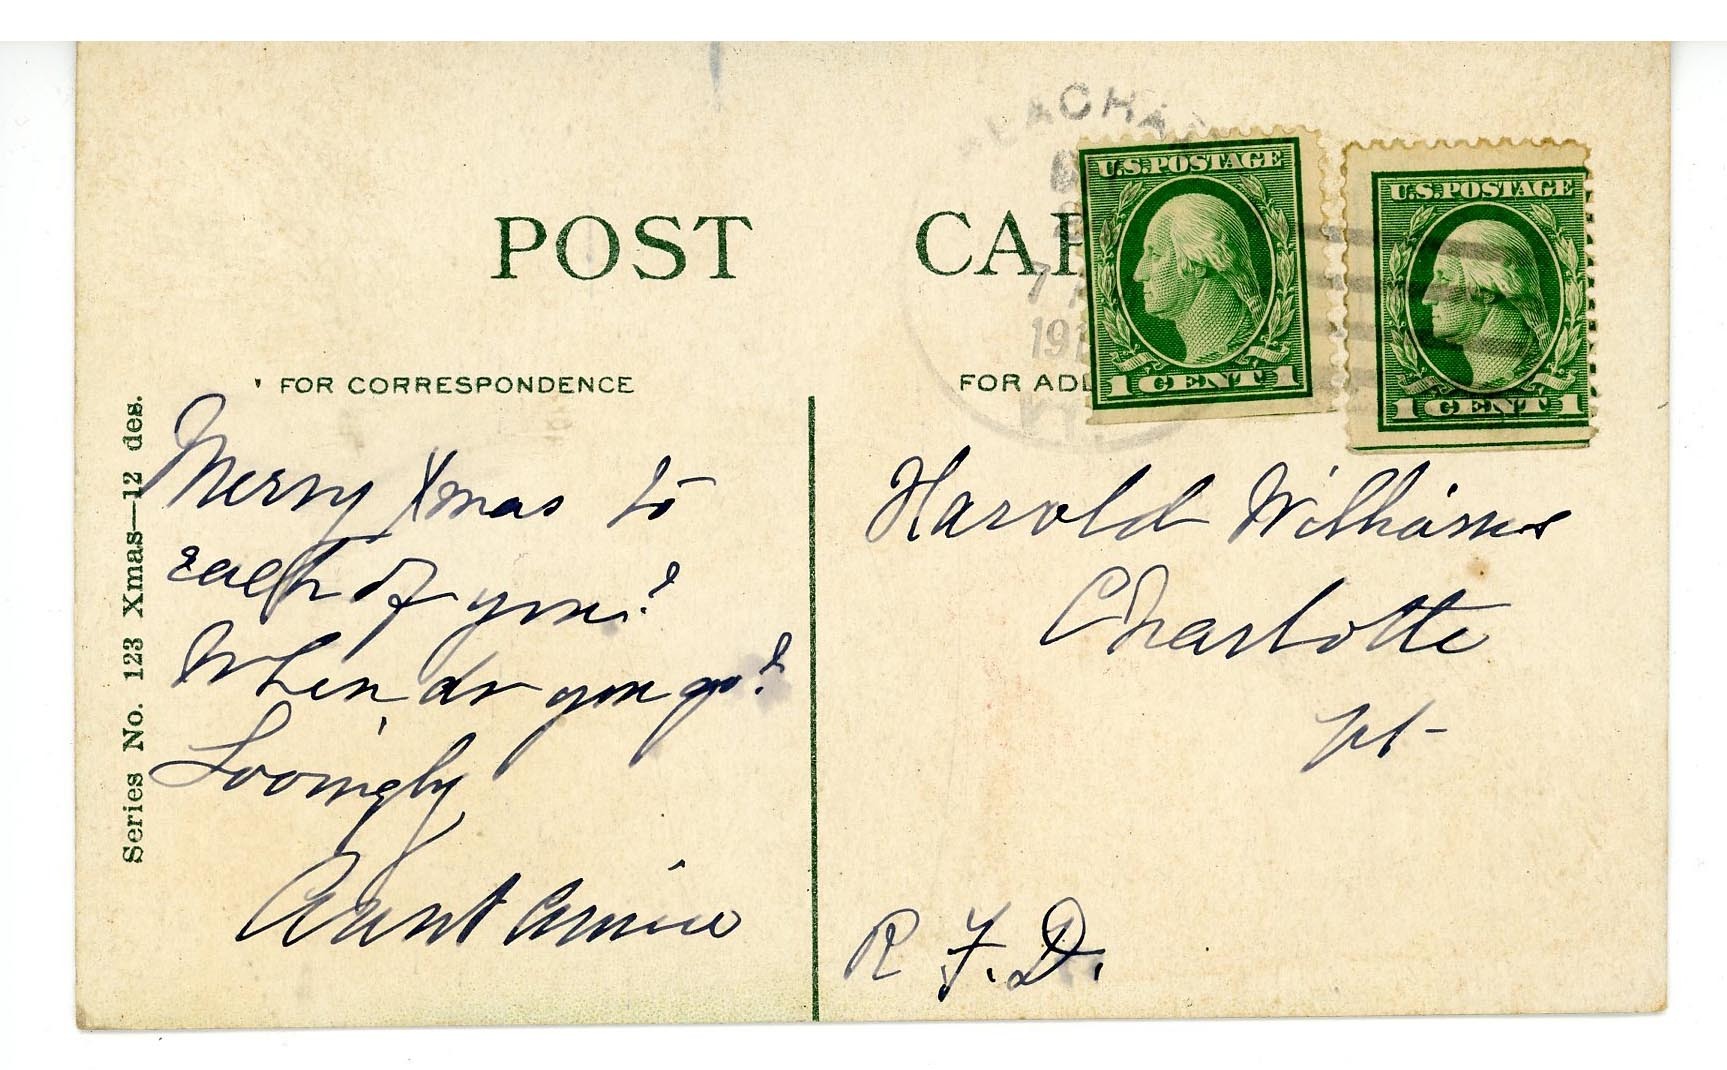 POST CAR
U.S. POSTAGE
1 CENT 1
U.S. POSTAGE
1 CENT 1
LACHA
7
191
FOR CORRESPONDENCE
FOR ADD
Series No. 123 Xmas—12 des.
Merry Xmas to
each of you!
When do you go?
Lovingly
Aunt
Harold Williams
Charlotte
Vt-
R. F. D.